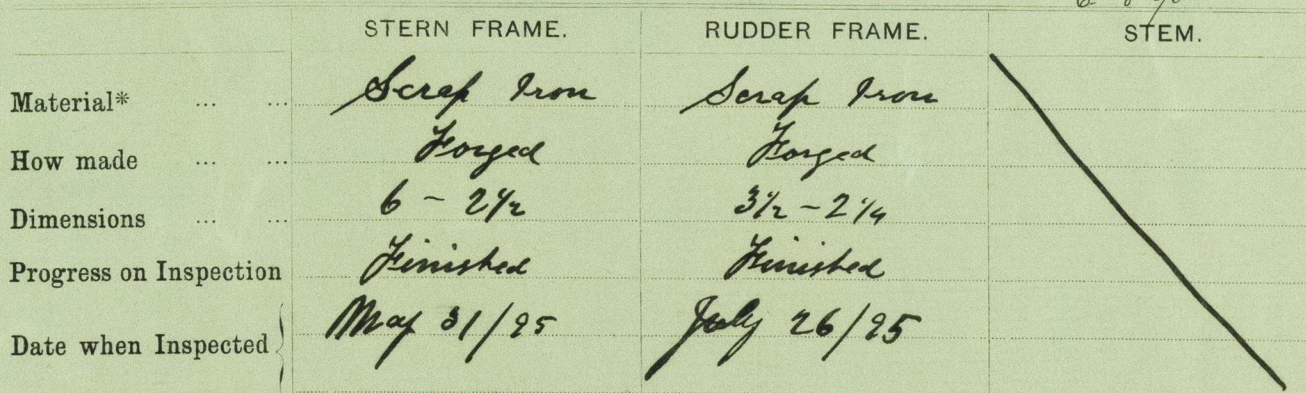 STERN FRAME. RUDDER FRAME. STEM.
Material* ... ... Scrap Iron Scrap Iron
How made ... ... Forged Forged
Dimensions ... ... 6 - 2½ 3½ - 2¼
Progress on Inspection Finished Finished
Date when Inspected May 31/95 July 26/95